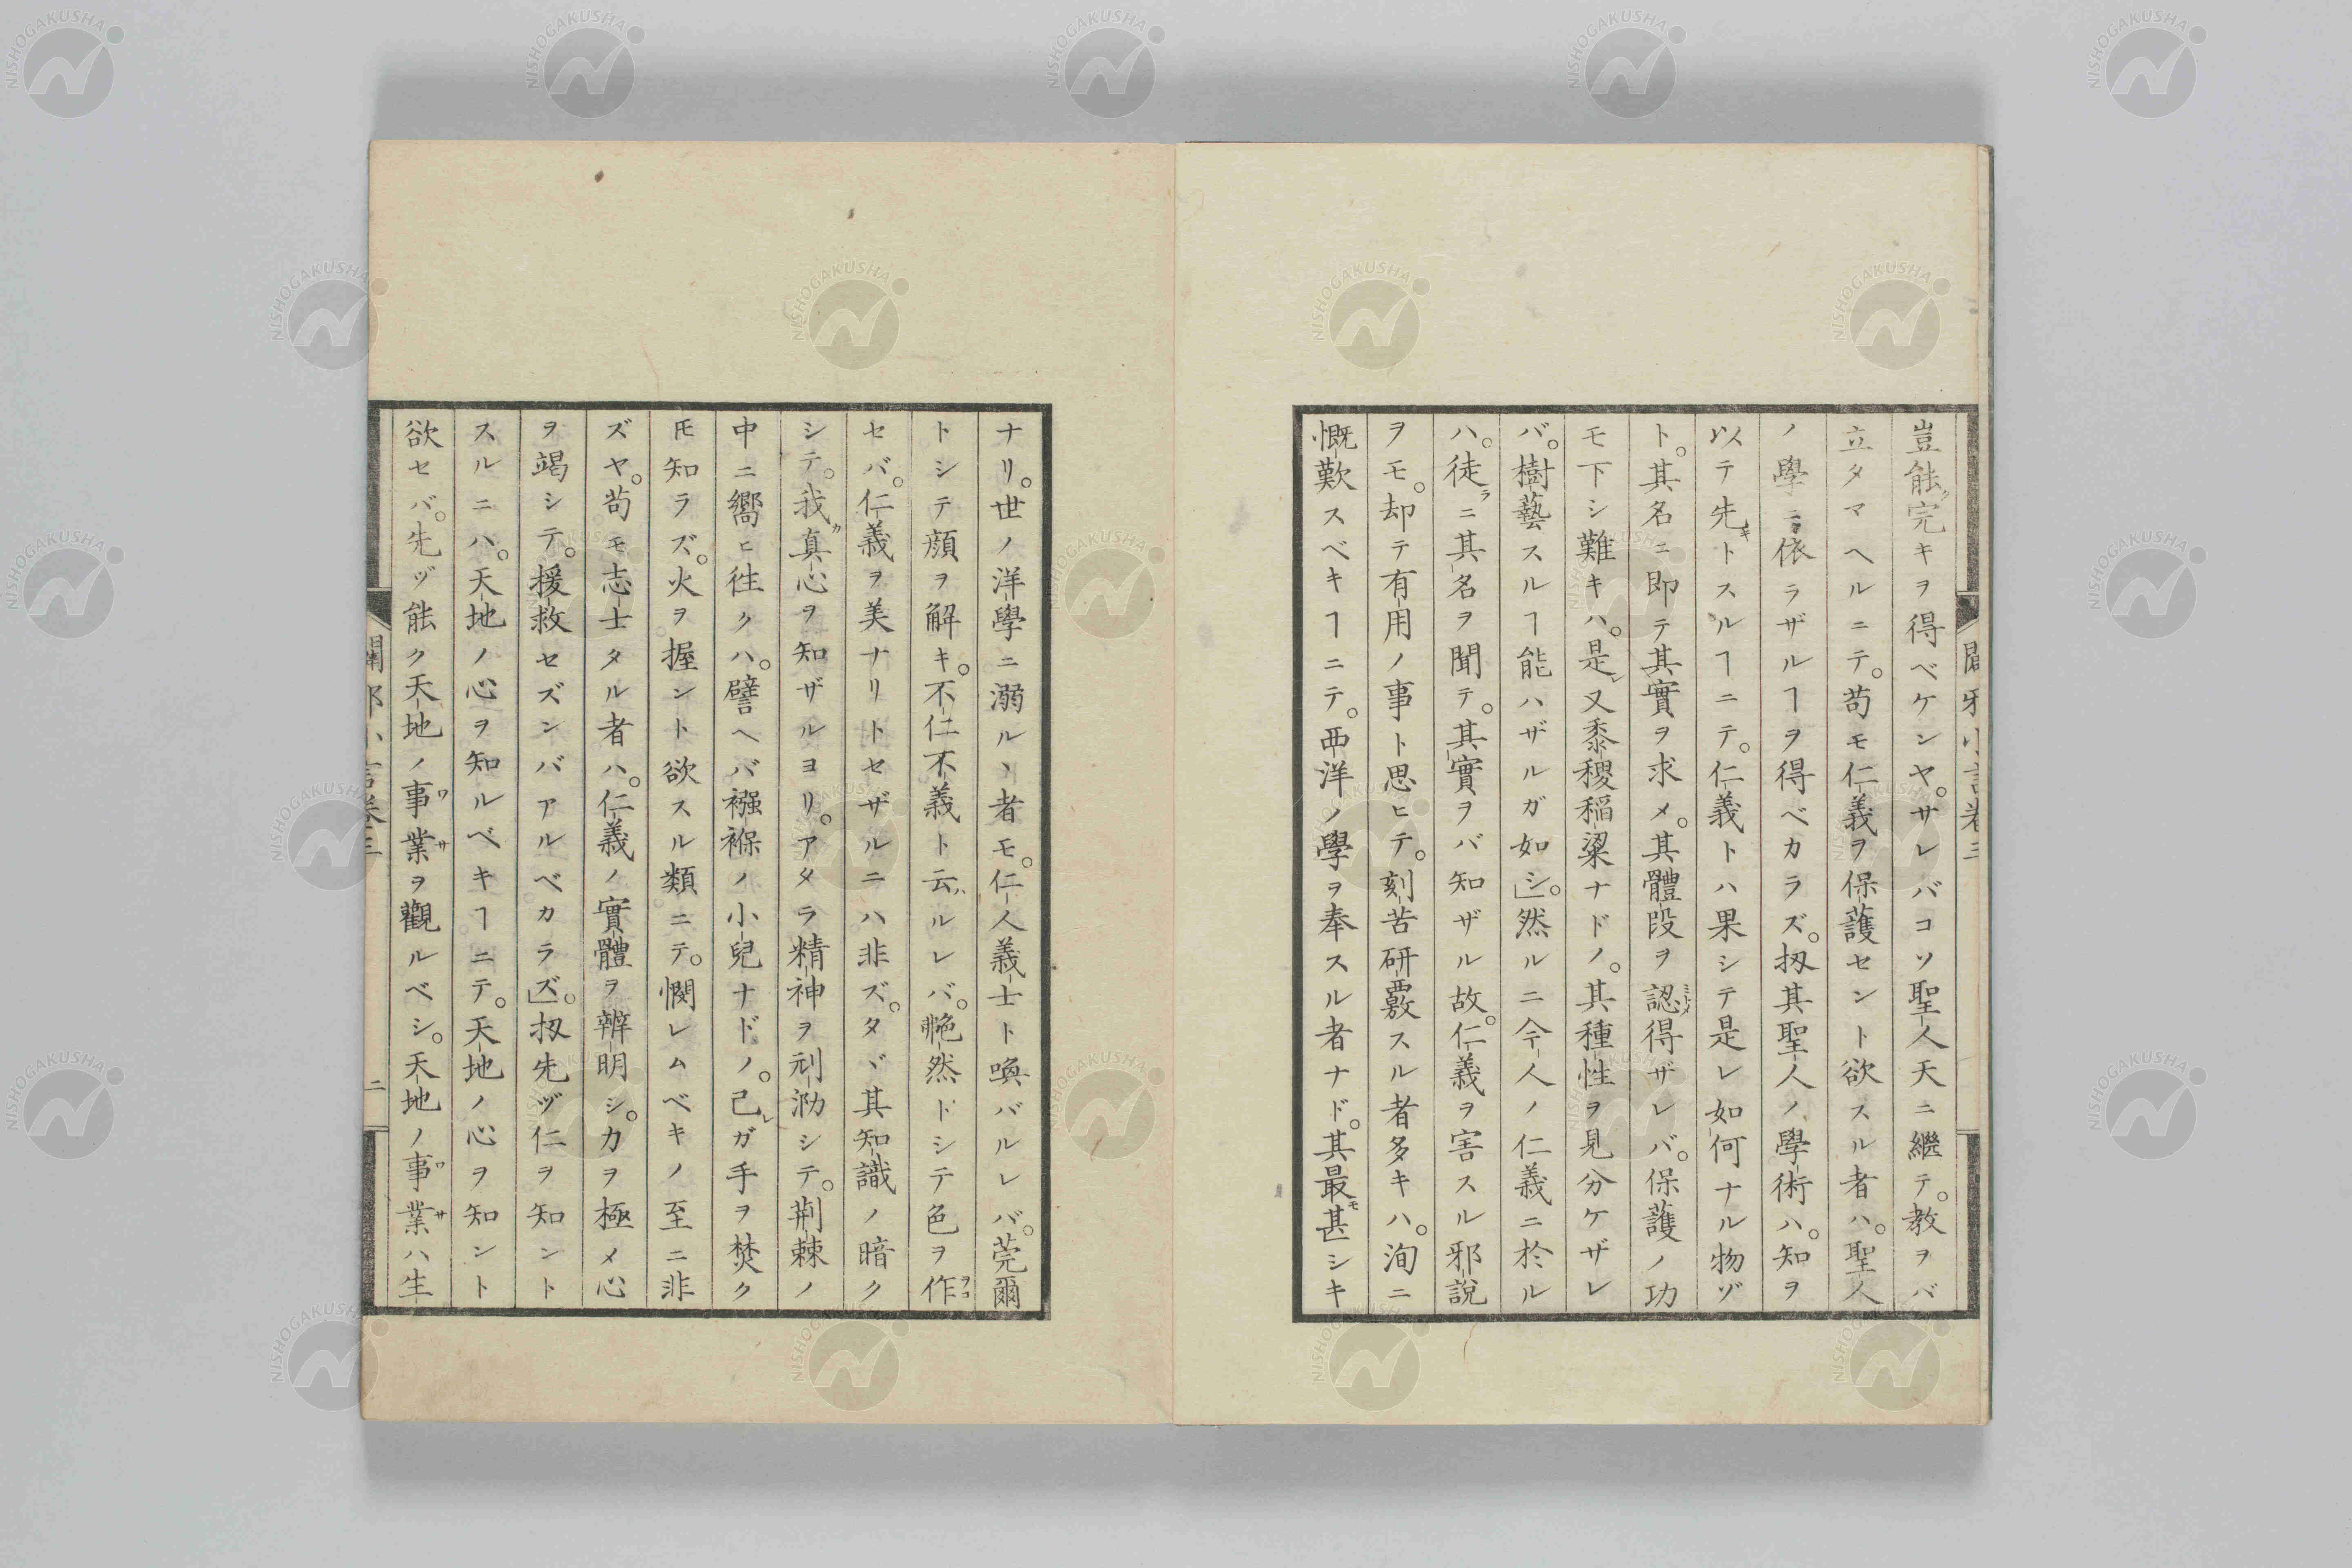 豈能ク完キヲ得ベケンヤ。サレバコソ聖人天ニ繼テ。教ヲバ
立タマヘルニテ。苟モ仁義ヲ保護セント欲スル者ハ。聖人
ノ學ニ依ラザルヿヲ得ベカラズ。扨其聖人ノ學術ハ。知ヲ
以テ先キトスルヿニテ。仁義トハ果シテ是レ如何ナル物ゾ
ト。其名ニ即テ其實ヲ求メ。其體段ヲ認得ザレバ。保護ノ功
モ下シ難キハ。是レ又黍稷稲粱ナドノ。其種性ヲ見分ケザレ
バ。樹藝スルヿ能ハザルガ如シ」。然ルニ今人ノ仁義ニ於ル
ハ。徒ラニ其名ヲ聞テ。其實ヲバ知ザル故。仁義ヲ害スル邪説
ヲモ。却テ有用ノ事ト思ヒテ。刻苦研覈スル者多キハ。洵ニ
慨歎スベキヿニテ。西洋ノ學ヲ奉スル者ナド。其最モ甚シキ
闢邪小言巻三
ナリ。世ノ洋學ニ溺ルヽ者モ。仁人義士ト喚バルレバ。莞爾
トシテ顔ヲ解キ。不仁不義ト云ハルレバ。艴然ドシテ色ヲ作
セバ。仁義ヲ美ナリトセザルニハ非ズ。タヾ其知識ノ暗ク
シテ。我ガ真心ヲ知ザルヨリ。アタラ精神ヲ刓泐シテ。荆棘ノ
中ニ嚮ヒ徃クハ。譬ヘバ襁褓ノ小兒ナドノ。己レガ手ヲ焚ク
𪜈知ラズ。火ヲ握ント欲スル類ニテ。憫レムベキノ至ニ非
ズヤ。苟モ志士タル者ハ。仁義ノ實體ヲ辨明シ。力ヲ極メ心
ヲ竭シテ。援救セズンバアルベカラズ」。扨先ヅ仁ヲ知ント
スルニハ。天地ノ心ヲ知ルベキヿニテ。天地ノ心ヲ知ント
欲セバ。先ヅ能ク天地ノ事業ヲ觀ルベシ。天地ノ事業ハ生
闢邪小言巻三
二